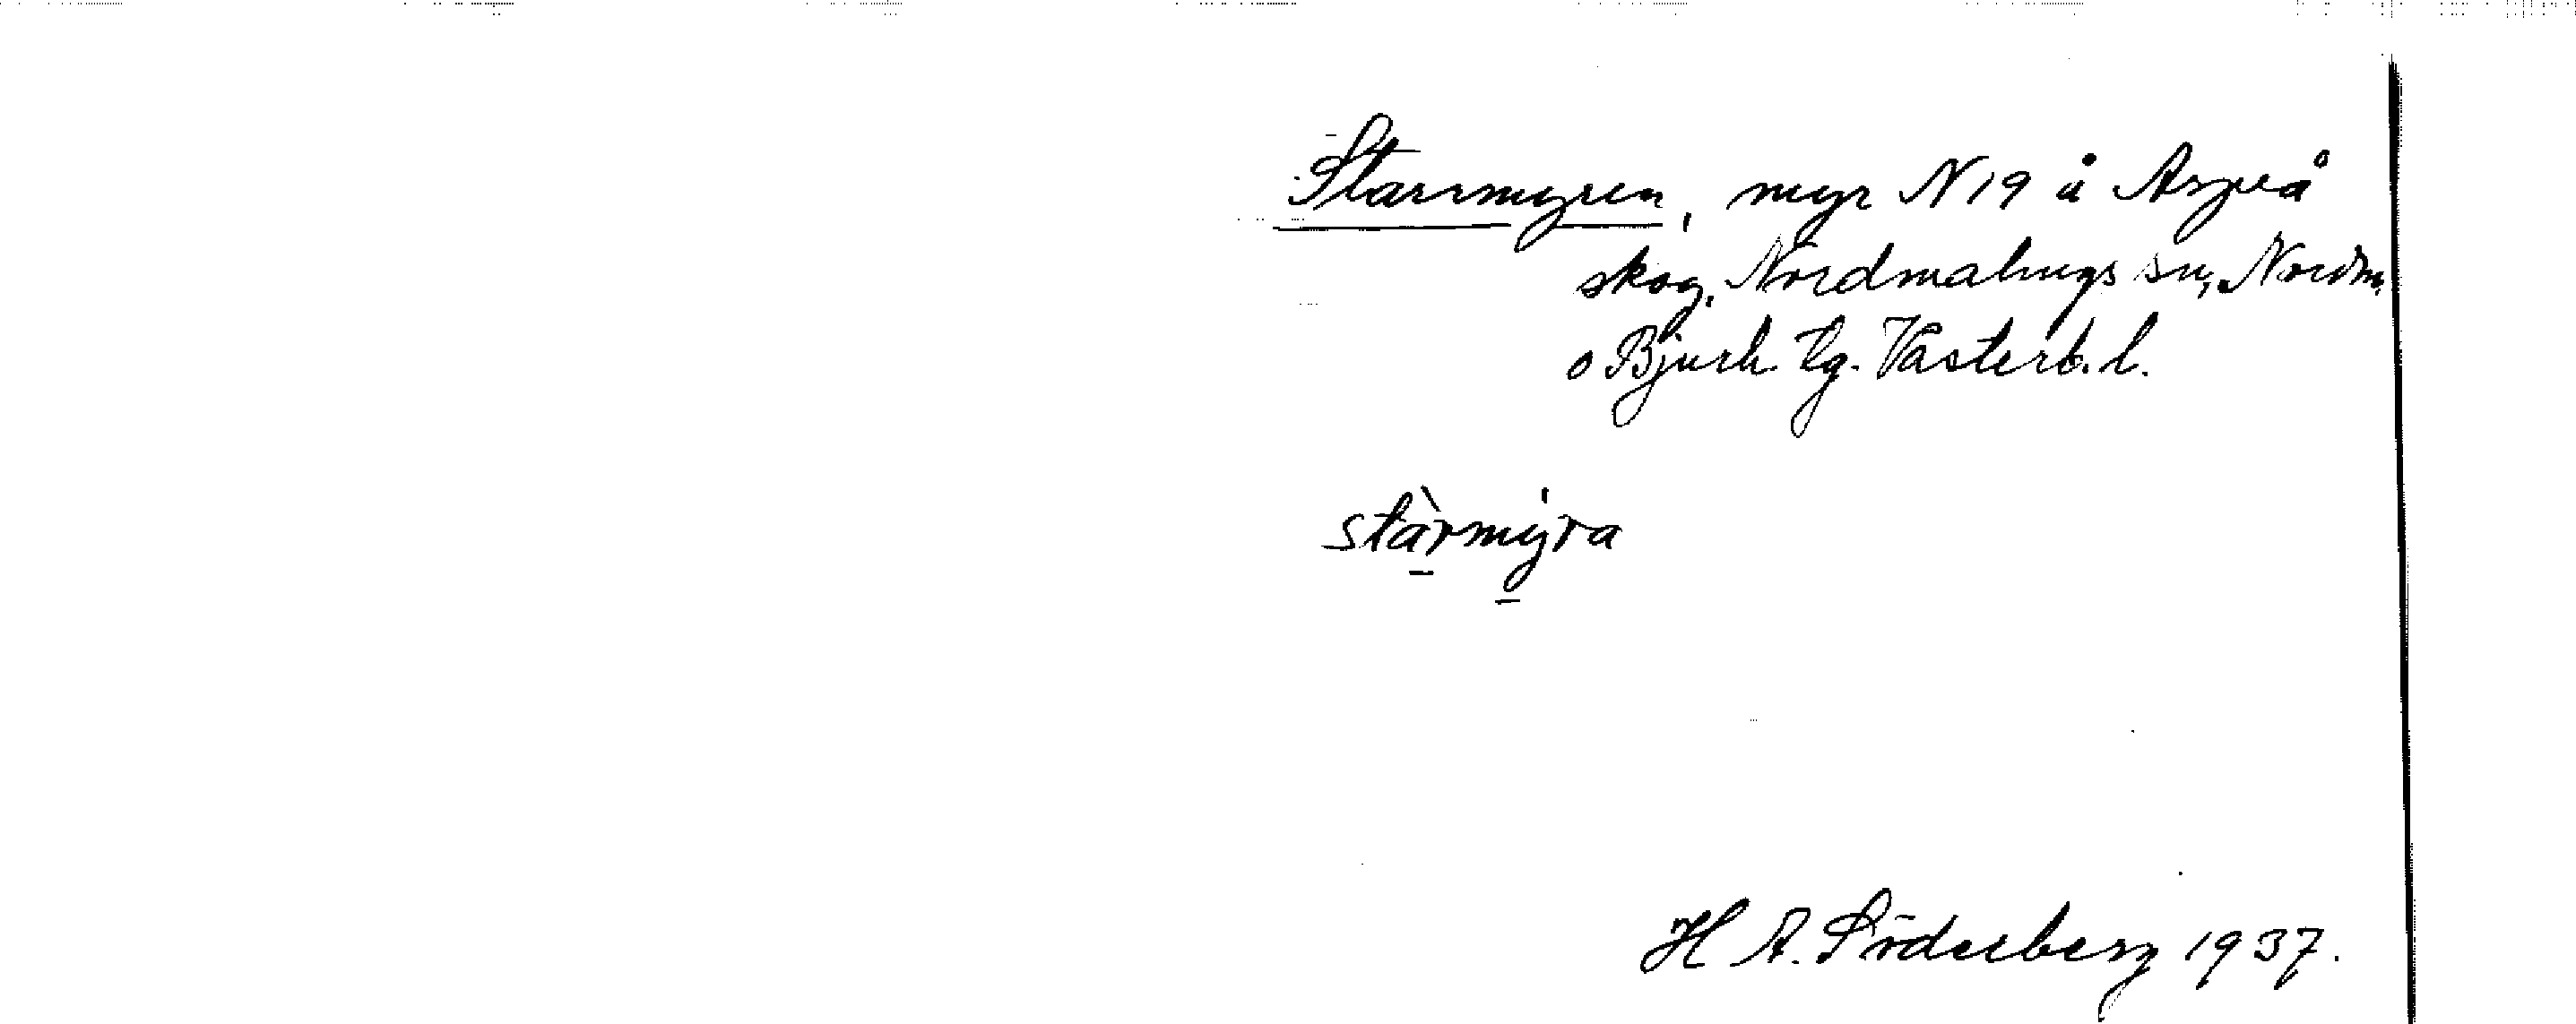 Starrmyren, myr N 19 å Aspeå
skog, Nordmalings sn, Nordm.
o Bjurh. tg. Västerb. l.
stàrmy̍ra
H A. Söderberg 1937.